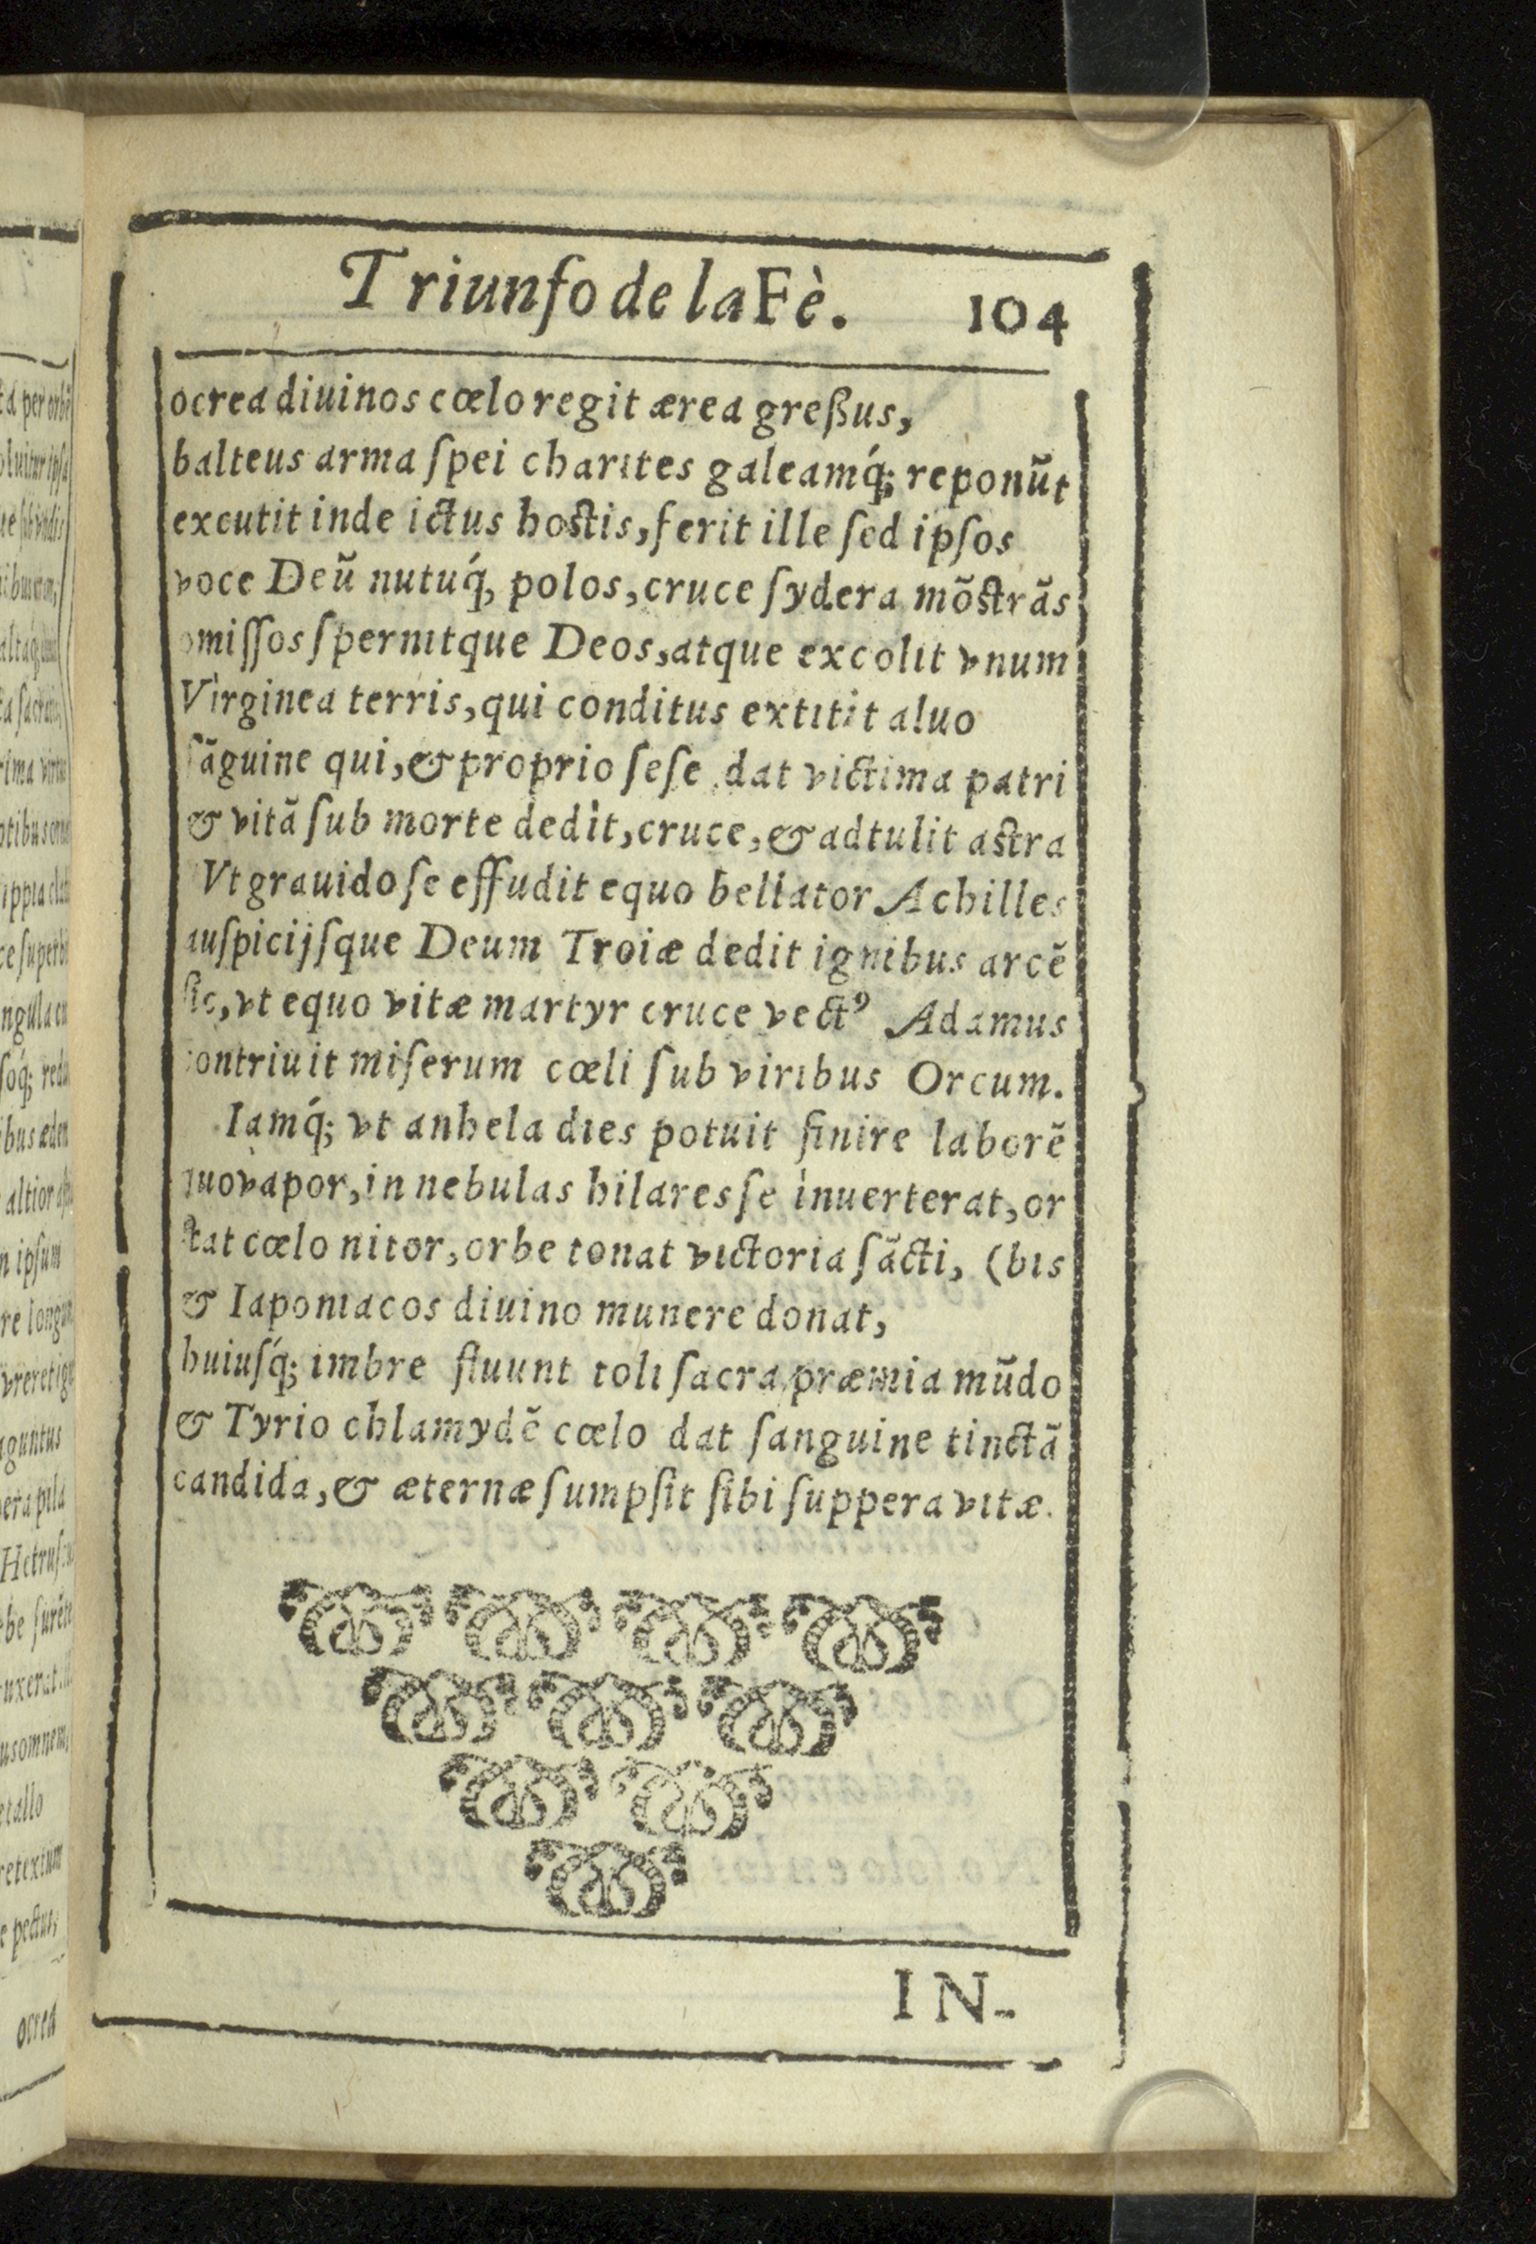 Triunfo de la Fè. 104
ocrea diuinos cœlo regit ærea greßus,
balteus arma ſpei charites galeamq́; reponũt
excutit inde ictus hostis, ferit ille ſed ipſos
voce Deũ nutuq́, polos, cruce ſydera mõstrãs
omiſſos ſpernitque Deos, atque excolit vnum
Virginea terris, qui conditus extitit aluo
ſãguine qui, & proprio ſeſe dat victima patri
& vitã ſub morte dedit, cruce, & adtulit astra
Vt grauido ſe effudit equo bellator Achilles
auſpicijſque Deum Troiæ dedit ignibus arcẽ
ſic, vt equo vitæ martyr cruce vectꝰ Adamus
contriuit miſerum cœli ſub viribus Orcum.
Iamq́; vt anhela dies potuit finire laborẽ
quo vapor, in nebulas hilares ſe inuerterat, or
stat cœlo nitor, orbe tonat victoria ſãcti, (bis
& Iaponiacos diuino munere donat,
huiuſq́; imbre fluunt toli ſacra præmia mũdo
& Tyrio chlamydẽ cœlo dat ſanguine tinctã
candida, & æternæ ſumpſit ſibi ſuppera vitæ.
IN-
ocrea